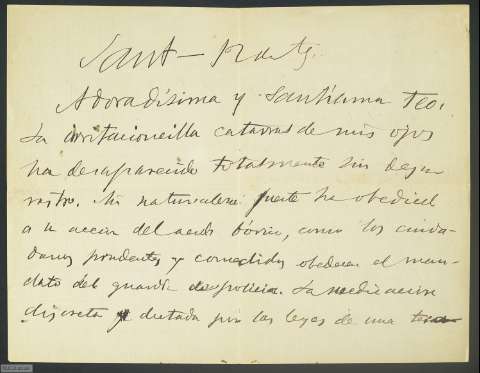 Sant–
Adoradísima y Santísima Teo:
La irritacioncilla catarral de mis ojos
ha desaparecido totalmente sin dejar
rastro. Mi naturaleza fuerte ha obedecid
a la accion del acido bórico, como los ciuda-
danos prudentes y comedidos obedecen el man-
dato del guardia de policia. La medicacion
discreta y dictada por las leyes de una